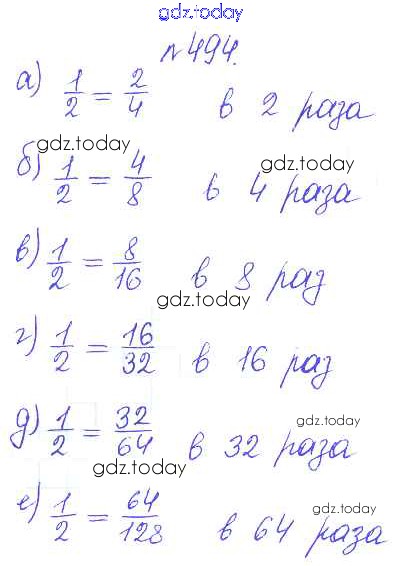 gdz.today
№494.
а) 1/2 = 2/4 в 2 раза
gdz.today
gdz.today
б) 1/2 = 4/8 в 4 раза
в) 1/2 = 8/16 в 8 раз
gdz.today
г) 1/2 = 16/32 в 16 раз
д) 1/2 = 32/64 в 32 раза
gdz.today
gdz.today
е) 1/2 = 64/128 в 64 раза
gdz.today